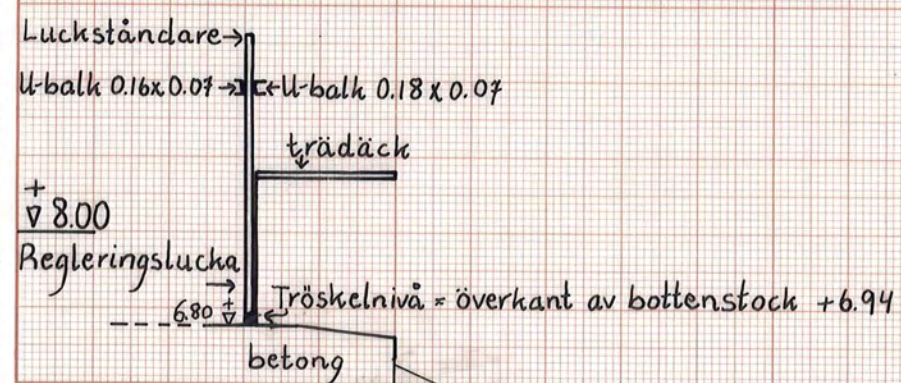 Luckståndare→
U-balk 0.16x0.07→ ←U-balk 0.18x0.07
trädäck
+
∇ 8.00
Regleringslucka
→
6.80 +∇ Tröskelnivå = överkant av bottenstock +6.94
betong